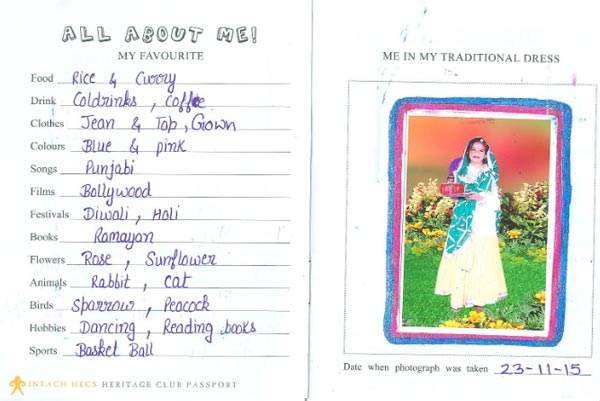 ALL ABOUT ME!
MY FAVOURITE
Food Rice & Curry
Drink Coldrinks, Coffee
Clothes Jean & Top, Gown
Colours Blue & pink
Songs Punjabi
Films Bollywood
Festivals Diwali, Holi
Books Ramayan
Flowers Rose, Sunflower
Animals Rabbit, Cat
Birds Sparrow, Peacock
Hobbies Dancing, Reading books
Sports Basket Ball
INTACH HECS HERITAGE CLUB PASSPORT
ME IN MY TRADITIONAL DRESS
Date when photograph was taken 23-11-15